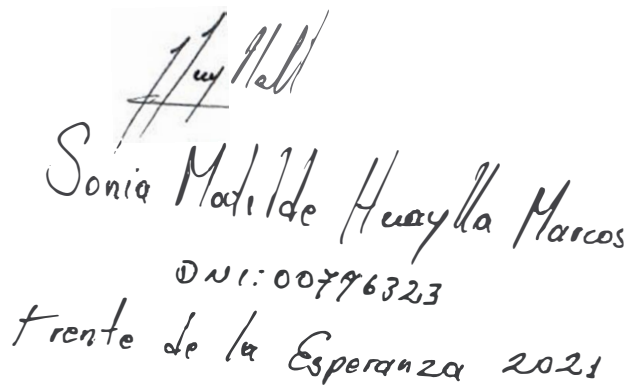 Sonia Matilde Huaylla Marcos
DNI: 00796323
Frente de la Esperanza 2021